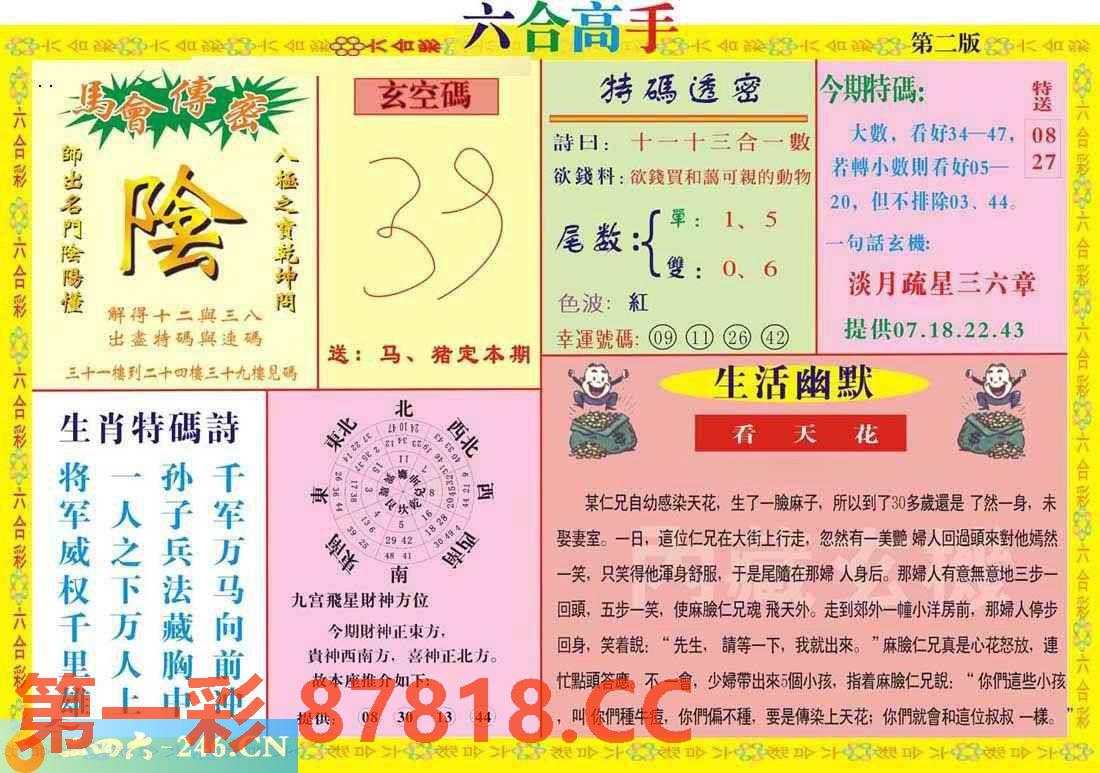 六合高手
第二版
馬會傳密
師出名門陰陽懂
陰
八極之寶乾坤問
解得十二與三八
出盡特碼與連碼
三十一樓到二十四樓三十九樓見碼
玄空碼
送：马、猪定本期
特碼透密
詩曰：十一十三合一數
欲錢料：欲錢買和藹可親的動物
尾数：
單：1、5
雙：0、6
色波：紅
幸運號碼：09 11 26 42
今期特碼：
大數，看好34—47，
若轉小數則看好05—
20，但不排除03、44。
一句話玄機：
淡月疏星三六章
提供07.18.22.43
特送
08
27
生肖特碼詩
千军万马向前冲
孙子兵法藏胸中
一人之下万人上
将军威权千里雄
北
西北
西
西南
南
東南
東
東北
九宫飛星財神方位
今期財神正東方，
貴神西南方，喜神正北方。
故本座推介如下：
提供：08 30 13 44
生活幽默
看天花
某仁兄自幼感染天花，生了一臉麻子，所以到了30多歲還是 了然一身，未
娶妻室。一日，這位仁兄在大街上行走，忽然有一美艷 婦人回過頭來對他嫣然
一笑，只笑得他渾身舒服，于是尾隨在那婦 人身后。那婦人有意無意地三步一
回頭，五步一笑，使麻臉仁兄魂 飛天外。走到郊外一幢小洋房前，那婦人停步
回身，笑着說：“ 先生， 請等一下，我就出來。”麻臉仁兄真是心花怒放，連
忙點頭答應。不 一會，少婦帶出來5個小孩，指着麻臉仁兄說：“ 你們這些小孩
，叫 你們種牛痘，你們偏不種，要是傳染上天花；你們就會和這位叔叔 一樣。”
第一彩 87818.CC
四六-246.CN
六合彩